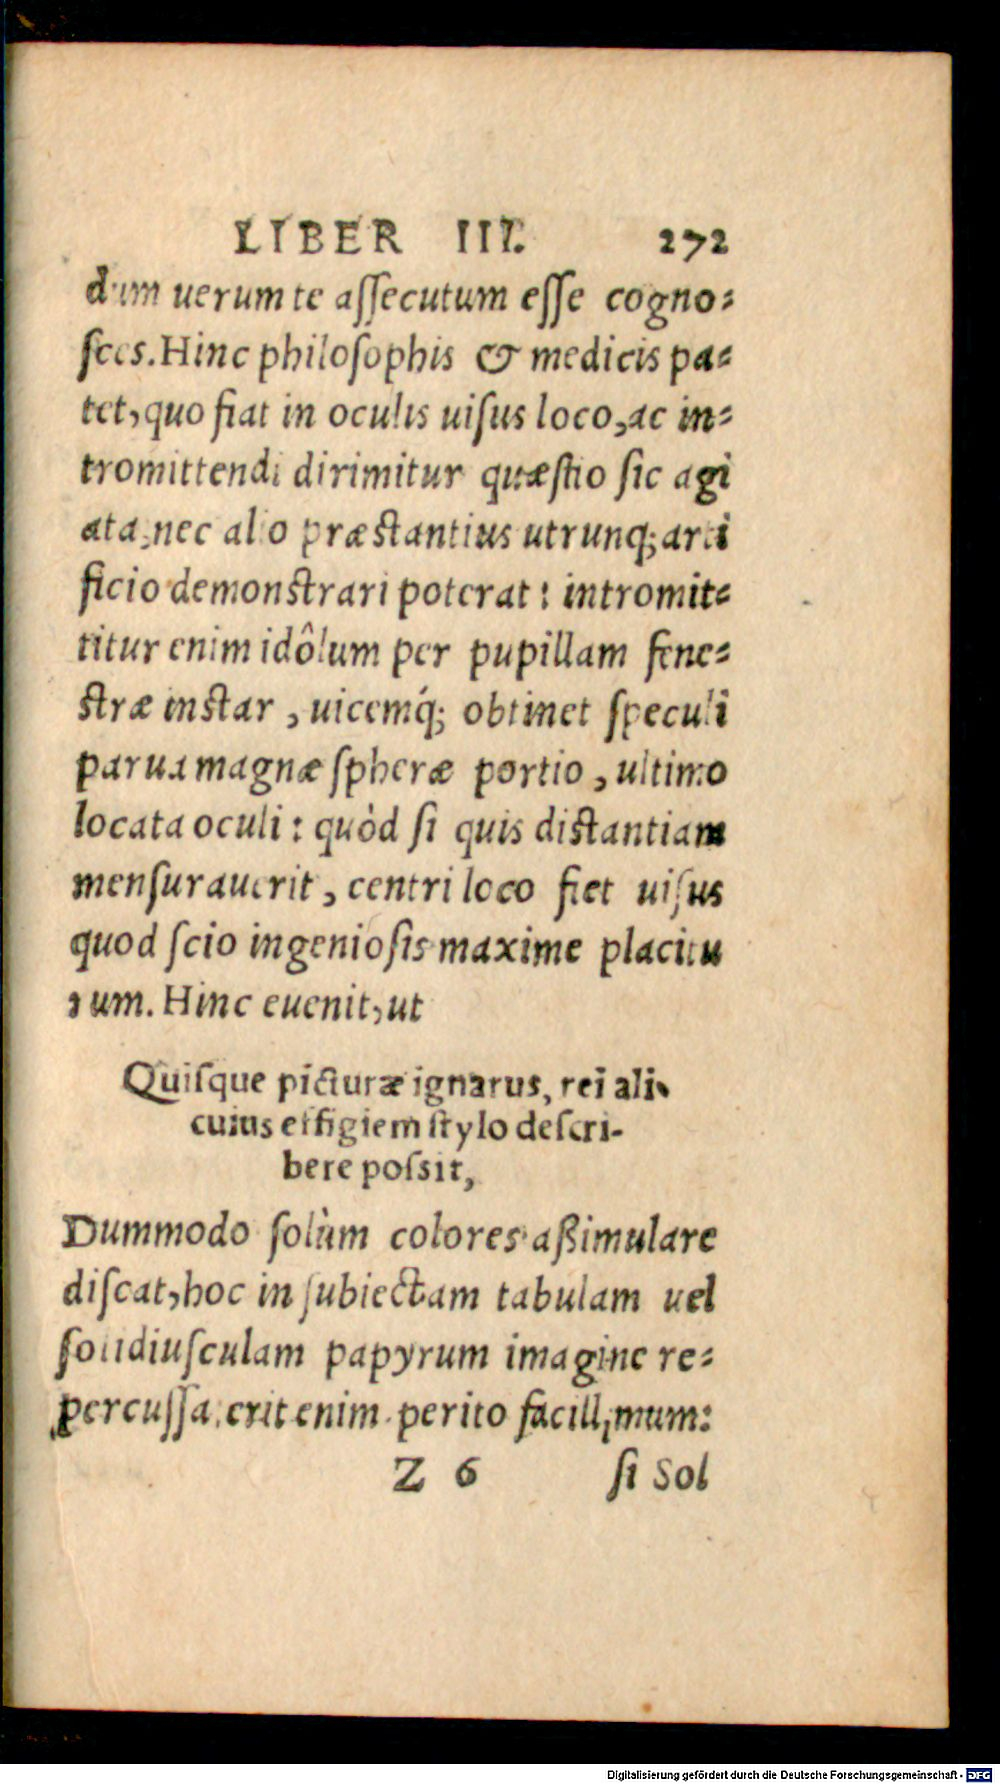 LIBER III. 272
dum uerum te aſſecutum eſſe cogno⸗
ſces. Hinc philoſophis & medicis pa⸗
tet, quo fiat in oculis uiſus loco, ac in⸗
tromittendi dirimitur quæſtio ſic agi
ata, nec alio præſtantius utrunq; arti
ficio demonſtrari poterat: intromit⸗
titur enim idôlum per pupillam fene⸗
ſtræ inſtar, uicemq́; obtinet ſpeculi
parua magnæ ſpheræ portio, ultimo
locata oculi: quòd ſi quis diſtantiam
menſurauerit, centri loco fiet uiſus
quod ſcio ingenioſis maxime placitu
rum. Hinc euenit, ut
Quiſque picturæ ignarus, rei ali-
cuius effigiem ſtylo deſcri-
bere poſsit,
Dummodo ſolùm colores aßimulare
diſcat, hoc in ſubiectam tabulam uel
ſolidiuſculam papyrum imagine re⸗
percuſſa, erit enim perito facillimum:
Z 6 ſi Sol
Digitalisierung gefördert durch die Deutsche Forschungsgemeinschaft - DFG